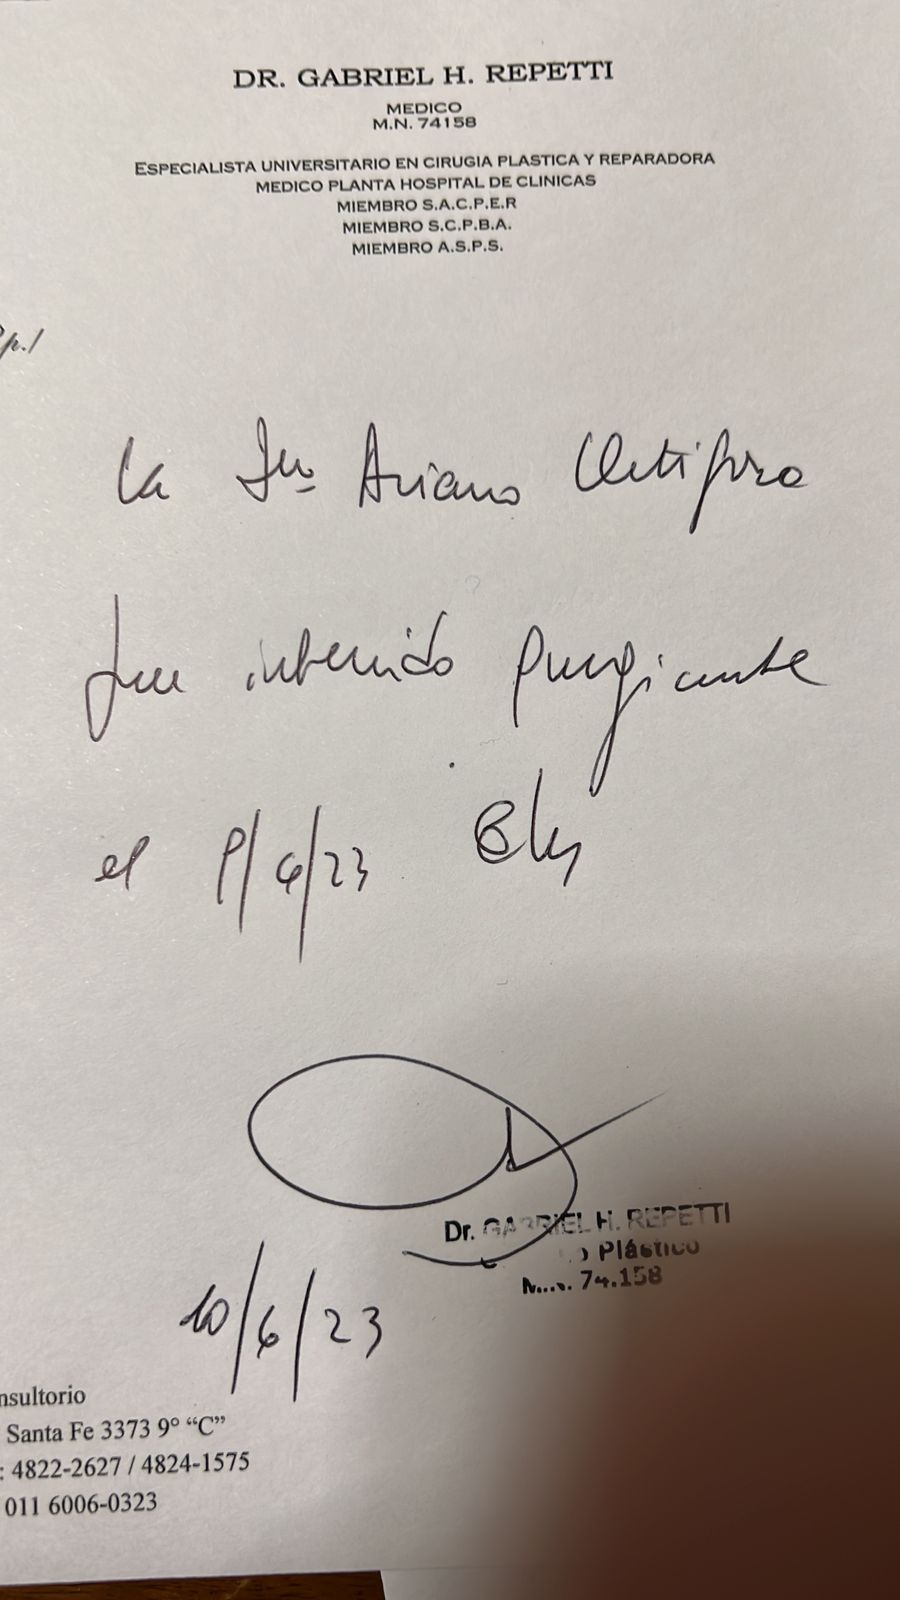 DR. GABRIEL H. REPETTI
MEDICO
M.N. 74158
ESPECIALISTA UNIVERSITARIO EN CIRUGIA PLASTICA Y REPARADORA
MEDICO PLANTA HOSPITAL DE CLINICAS
MIEMBRO S.A.C.P.E.R
MIEMBRO S.C.P.B.A.
MIEMBRO A.S.P.S.
p./
La Sra Ariana
fue
el 9/6/23
Dr. GABRIEL H. REPETTI
Plástico
74.158
10/6/23
nsultorio
Santa Fe 3373 9° “C”
: 4822-2627 / 4824-1575
011 6006-0323